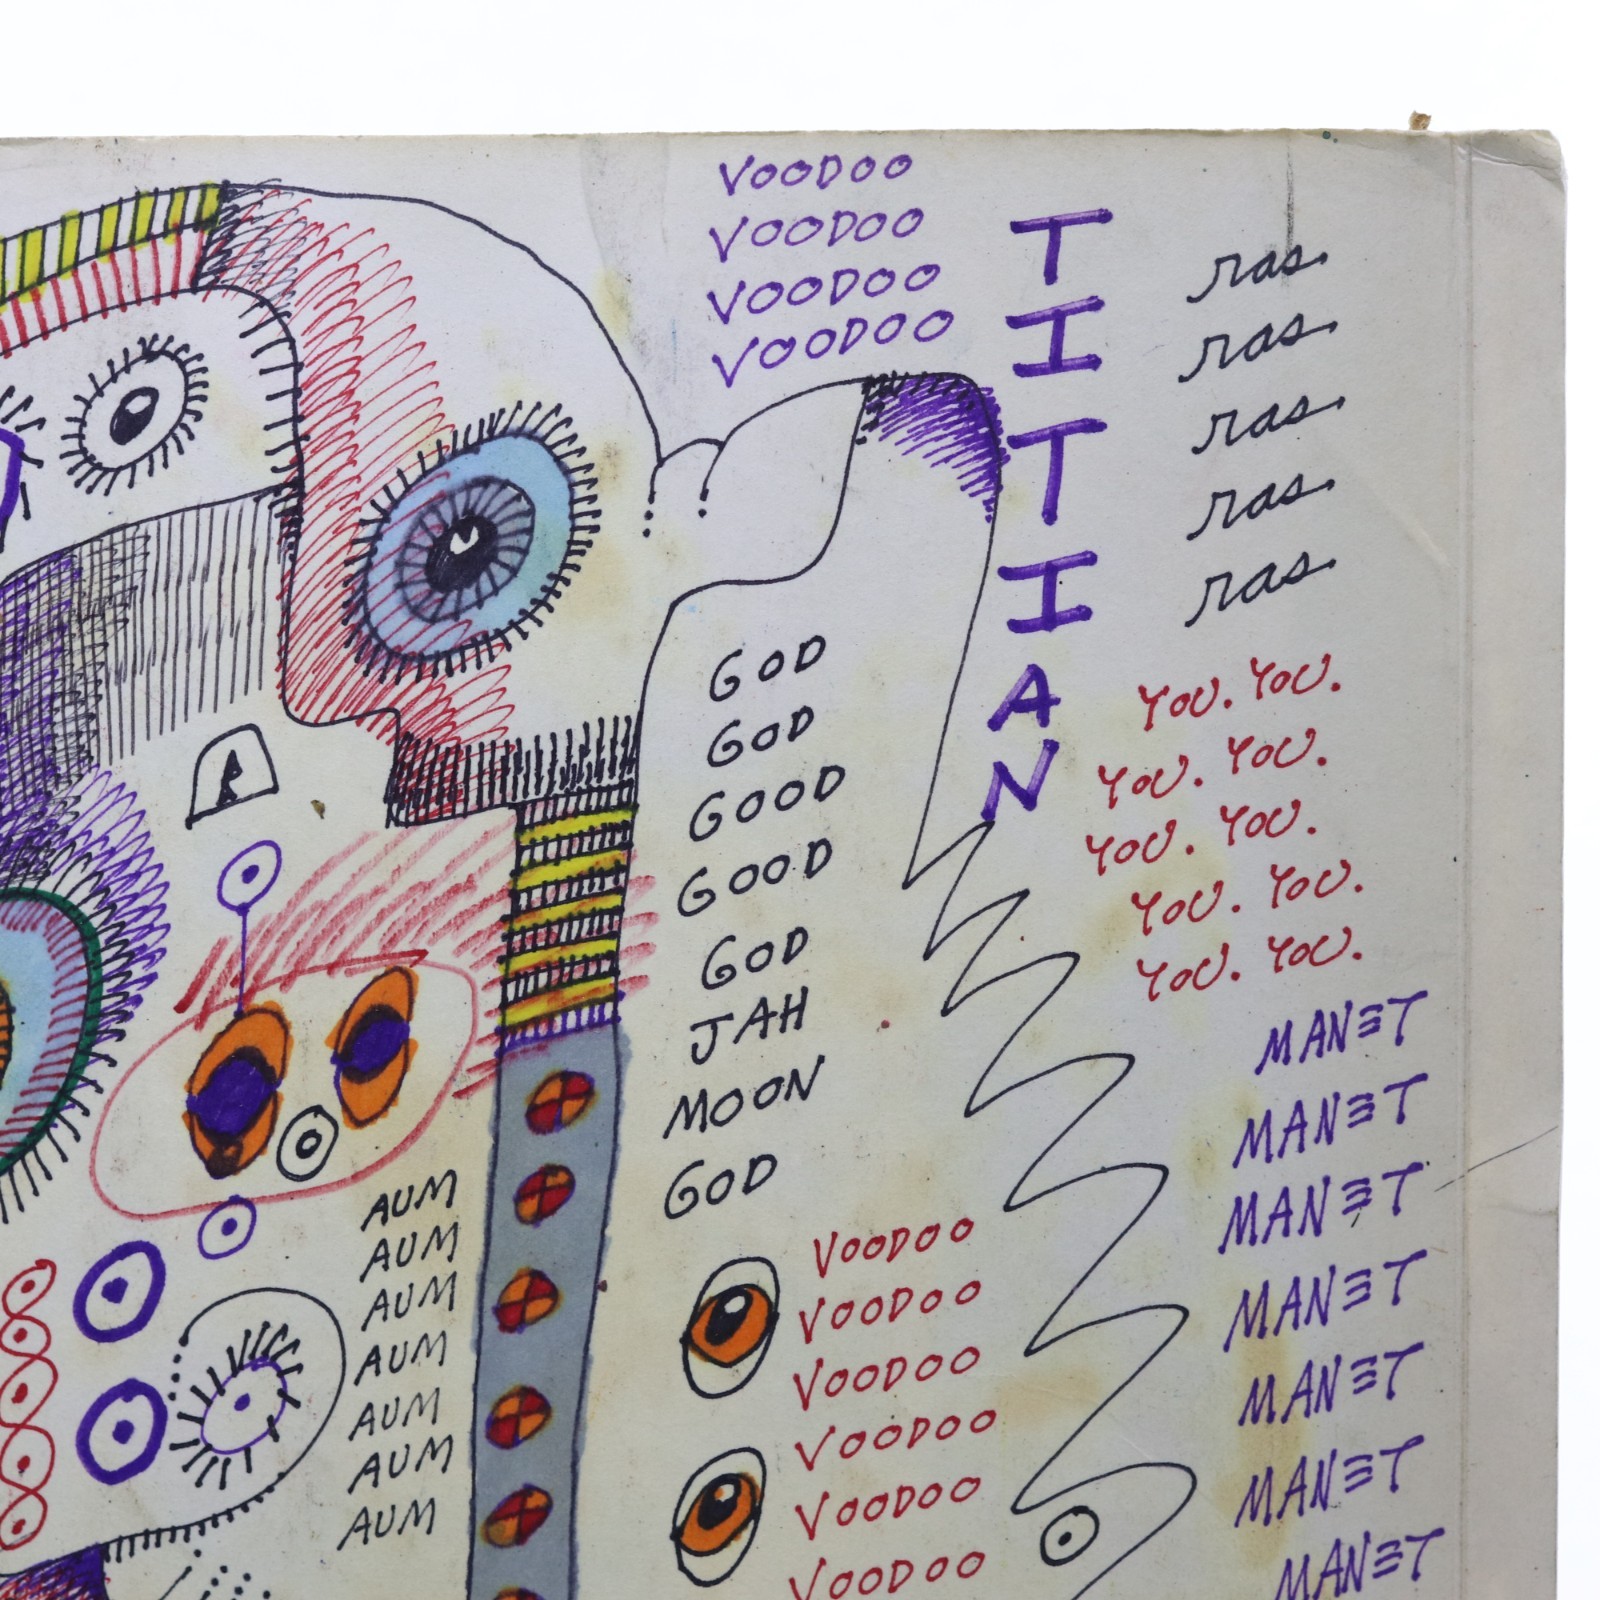 VOODOO
VOODOO
VOODOO
VOODOO
TITIAN
ras.
ras.
ras.
ras.
ras.
YOU. YOU.
YOU. YOU.
YOU. YOU.
YOU. YOU.
YOU. YOU.
GOD
GOD
GOOD
GOOD
GOD
JAH
MOON
GOD
MANET
MANET
MANET
MANET
MANET
MANET
MANET
AUM
AUM
AUM
AUM
AUM
AUM
AUM
VOODOO
VOODOO
VOODOO
VOODOO
VOODOO
VOODOO